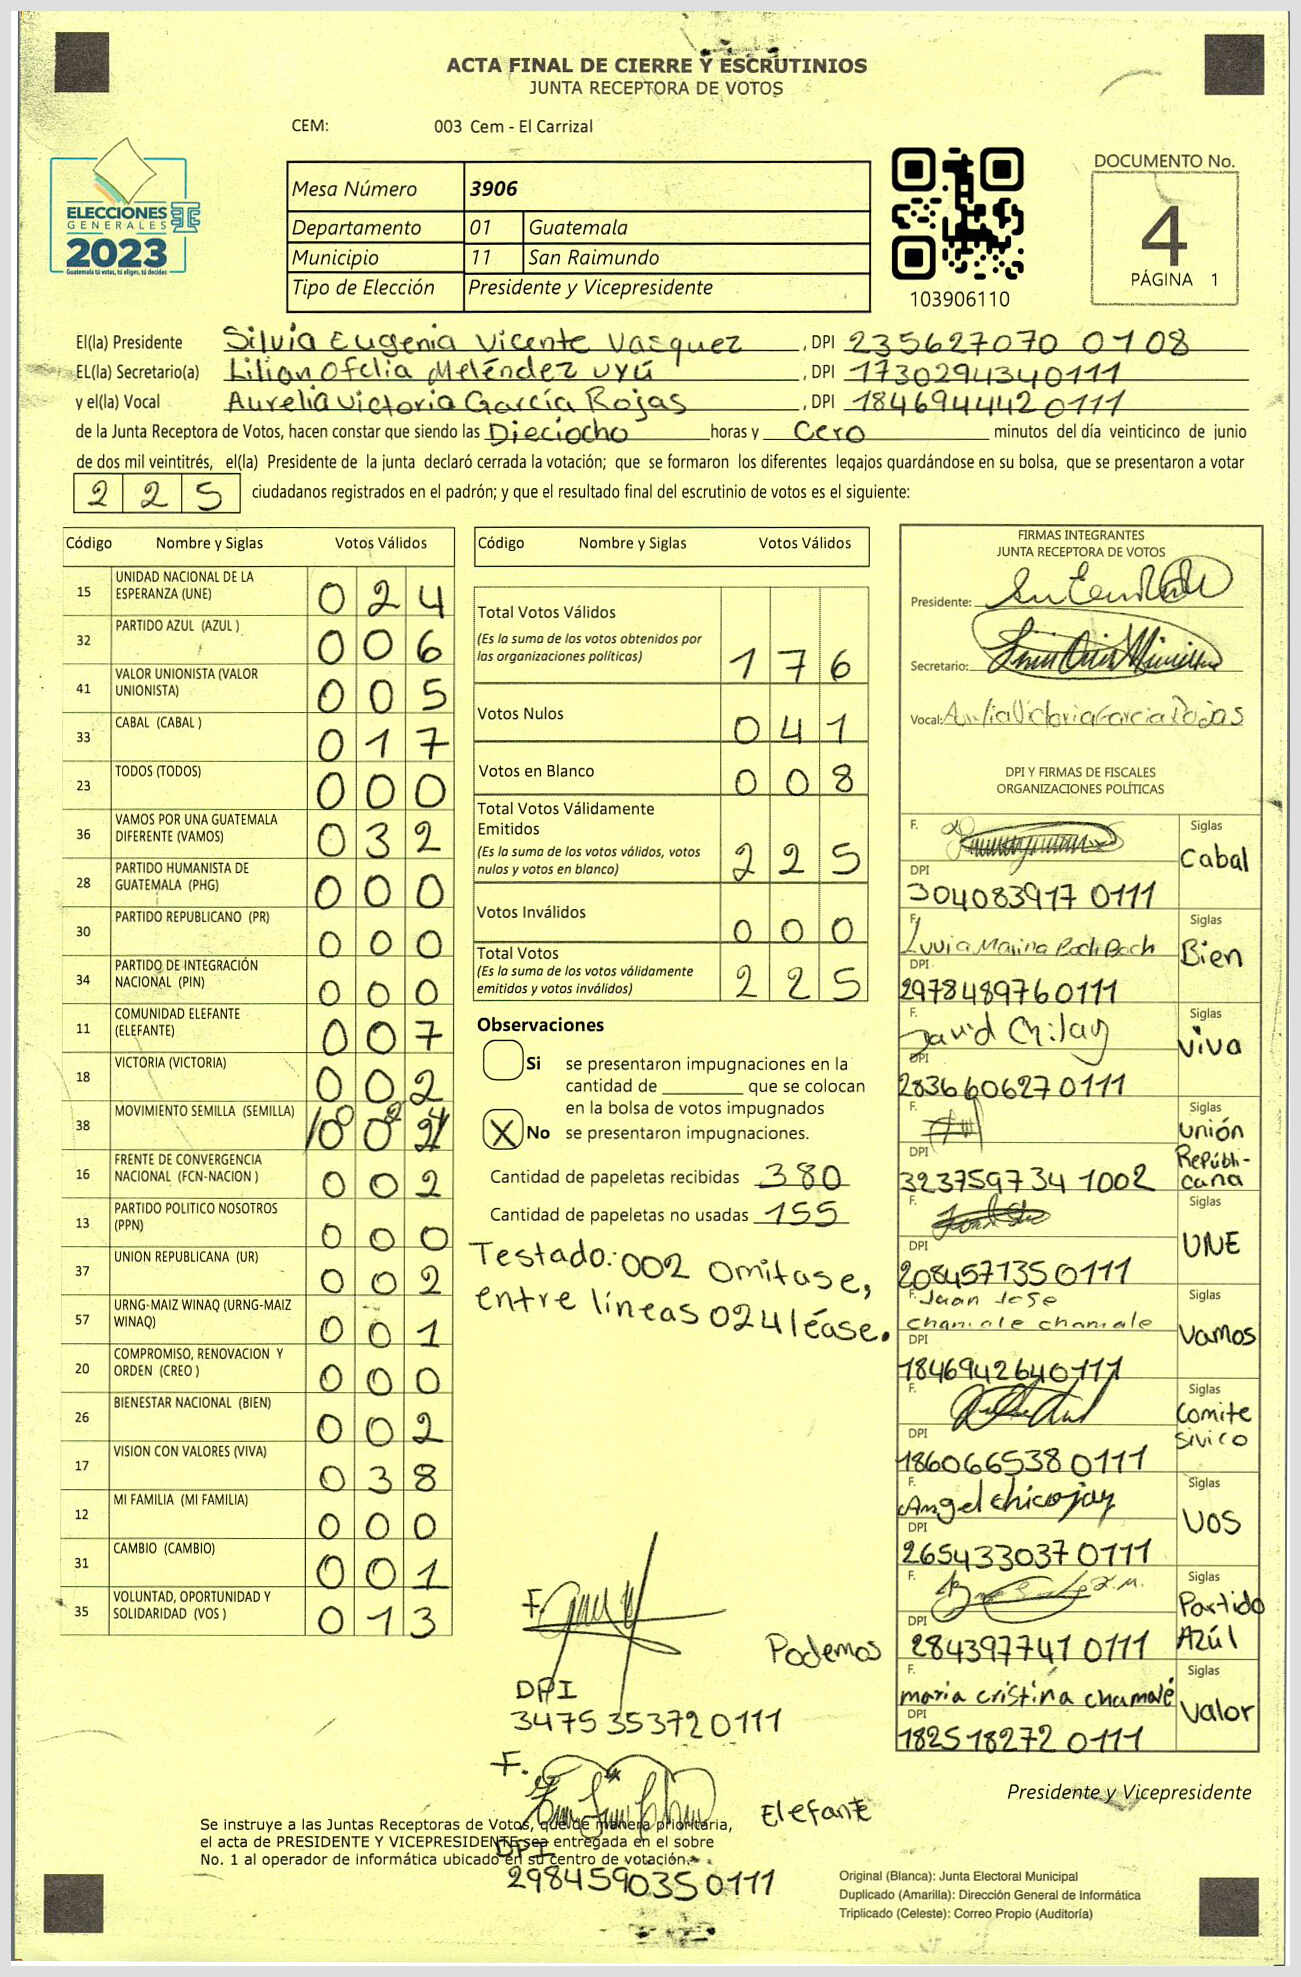 ACTA FINAL DE CIERRE Y ESCRUTINIOS
JUNTA RECEPTORA DE VOTOS
CEM: 003 Cem - El Carrizal
ELECCIONES
GENERALES
2023
Guatemala tú votas, tú eliges, tú decides
Mesa Número 3906
Departamento 01 Guatemala
Municipio 11 San Raimundo
Tipo de Elección Presidente y Vicepresidente
103906110
DOCUMENTO No.
4
PÁGINA 1
El(la) Presidente Silvia Eugenia Vicente Vasquez , DPI 235627070 0108
EL(la) Secretario(a) Lilian Ofelia Meléndez uyú , DPI 1730294340111
y el(la) Vocal Aurelia Victoria García Rojas , DPI 1846944420111
de la Junta Receptora de Votos, hacen constar que siendo las Dieciocho horas y Cero minutos del día veinticinco de junio
de dos mil veintitrés, el(la) Presidente de la junta declaró cerrada la votación; que se formaron los diferentes legajos guardándose en su bolsa, que se presentaron a votar
225 ciudadanos registrados en el padrón; y que el resultado final del escrutinio de votos es el siguiente:
Código Nombre y Siglas Votos Válidos
15 UNIDAD NACIONAL DE LA ESPERANZA (UNE) 024
32 PARTIDO AZUL (AZUL ) 006
41 VALOR UNIONISTA (VALOR UNIONISTA) 005
33 CABAL (CABAL ) 017
23 TODOS (TODOS) 000
36 VAMOS POR UNA GUATEMALA DIFERENTE (VAMOS) 032
28 PARTIDO HUMANISTA DE GUATEMALA (PHG) 000
30 PARTIDO REPUBLICANO (PR) 000
34 PARTIDO DE INTEGRACIÓN NACIONAL (PIN) 000
11 COMUNIDAD ELEFANTE (ELEFANTE) 007
18 VICTORIA (VICTORIA) 002
38 MOVIMIENTO SEMILLA (SEMILLA) 024
16 FRENTE DE CONVERGENCIA NACIONAL (FCN-NACION ) 002
13 PARTIDO POLITICO NOSOTROS (PPN) 000
37 UNION REPUBLICANA (UR) 002
57 URNG-MAIZ WINAQ (URNG-MAIZ WINAQ) 001
20 COMPROMISO, RENOVACION Y ORDEN (CREO ) 000
26 BIENESTAR NACIONAL (BIEN) 002
17 VISION CON VALORES (VIVA) 038
12 MI FAMILIA (MI FAMILIA) 000
31 CAMBIO (CAMBIO) 001
35 VOLUNTAD, OPORTUNIDAD Y SOLIDARIDAD (VOS ) 013
Código Nombre y Siglas Votos Válidos
Total Votos Válidos 176
(Es la suma de los votos obtenidos por
las organizaciones políticas)
Votos Nulos 041
Votos en Blanco 008
Total Votos Válidamente
Emitidos 225
(Es la suma de los votos válidos, votos
nulos y votos en blanco)
Votos Inválidos 000
Total Votos 225
(Es la suma de los votos válidamente
emitidos y votos inválidos)
Observaciones
Si se presentaron impugnaciones en la
cantidad de ________ que se colocan
en la bolsa de votos impugnados
X No se presentaron impugnaciones.
Cantidad de papeletas recibidas 380
Cantidad de papeletas no usadas 155
Testado: 002 Omitase,
entre líneas 024 léase.
F.
DPI
3475 35372 0111
Podemos
F.
Elefante
DPI
298459035 0111
FIRMAS INTEGRANTES
JUNTA RECEPTORA DE VOTOS
Presidente:
Secretario:
Vocal: Aurelia Victoria Garcia Rojas
DPI Y FIRMAS DE FISCALES
ORGANIZACIONES POLÍTICAS
F. Siglas
Cabal
DPI
304083917 0111
F. Siglas
Bien
DPI
2978489760111
F. David Chilay Siglas
viva
DPI
283660627 0111
F. Siglas
unión
Repúbli-
cana
DPI
323759734 1002
F. Siglas
UNE
DPI
208457135 0111
F. Juan Jose Siglas
chamale chamale
Vamos
DPI
1846942640111
F. Siglas
Comite
sivico
DPI
186066538 0111
F. Siglas
Angel chicojay
VOS
DPI
265433037 0111
F. Siglas
Partido
Azúl
DPI
284397741 0111
F. Siglas
maria cristina chamalé
Valor
DPI
182518272 0111
Presidente y Vicepresidente
Se instruye a las Juntas Receptoras de Votos, que de manera prioritaria,
el acta de PRESIDENTE Y VICEPRESIDENTE sea entregada en el sobre
No. 1 al operador de informática ubicado en su centro de votación.
Original (Blanca): Junta Electoral Municipal
Duplicado (Amarilla): Dirección General de Informática
Triplicado (Celeste): Correo Propio (Auditoría)